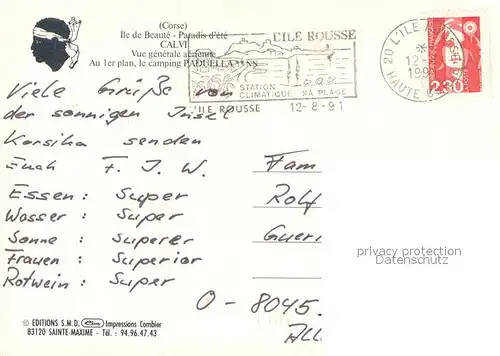 (Corse)
Ile de Beauté - Paradis d'été
CALVI
Vue générale aérienne
Au 1er plan, le camping PADUELLA
L'ILE ROUSSE
STATION
CLIMATIQUE SA PLAGE
L'ILE ROUSSE 12-8-91
20 L'ILE
12-
HAUTE
2,30
Viele Grüße von
der sonnigen Insel
Korsika senden
Euch F. J. W.
Essen: Super
Wasser: Super
Sonne: Superer
Frauen: Superior
Rotwein: Super
Fam
Rolf
O-8045.
privacy protection
Datenschutz
© EDITIONS S.M.D. Impressions Combier
83120 SAINTE-MAXIME - Tél. : 94.96.47.43